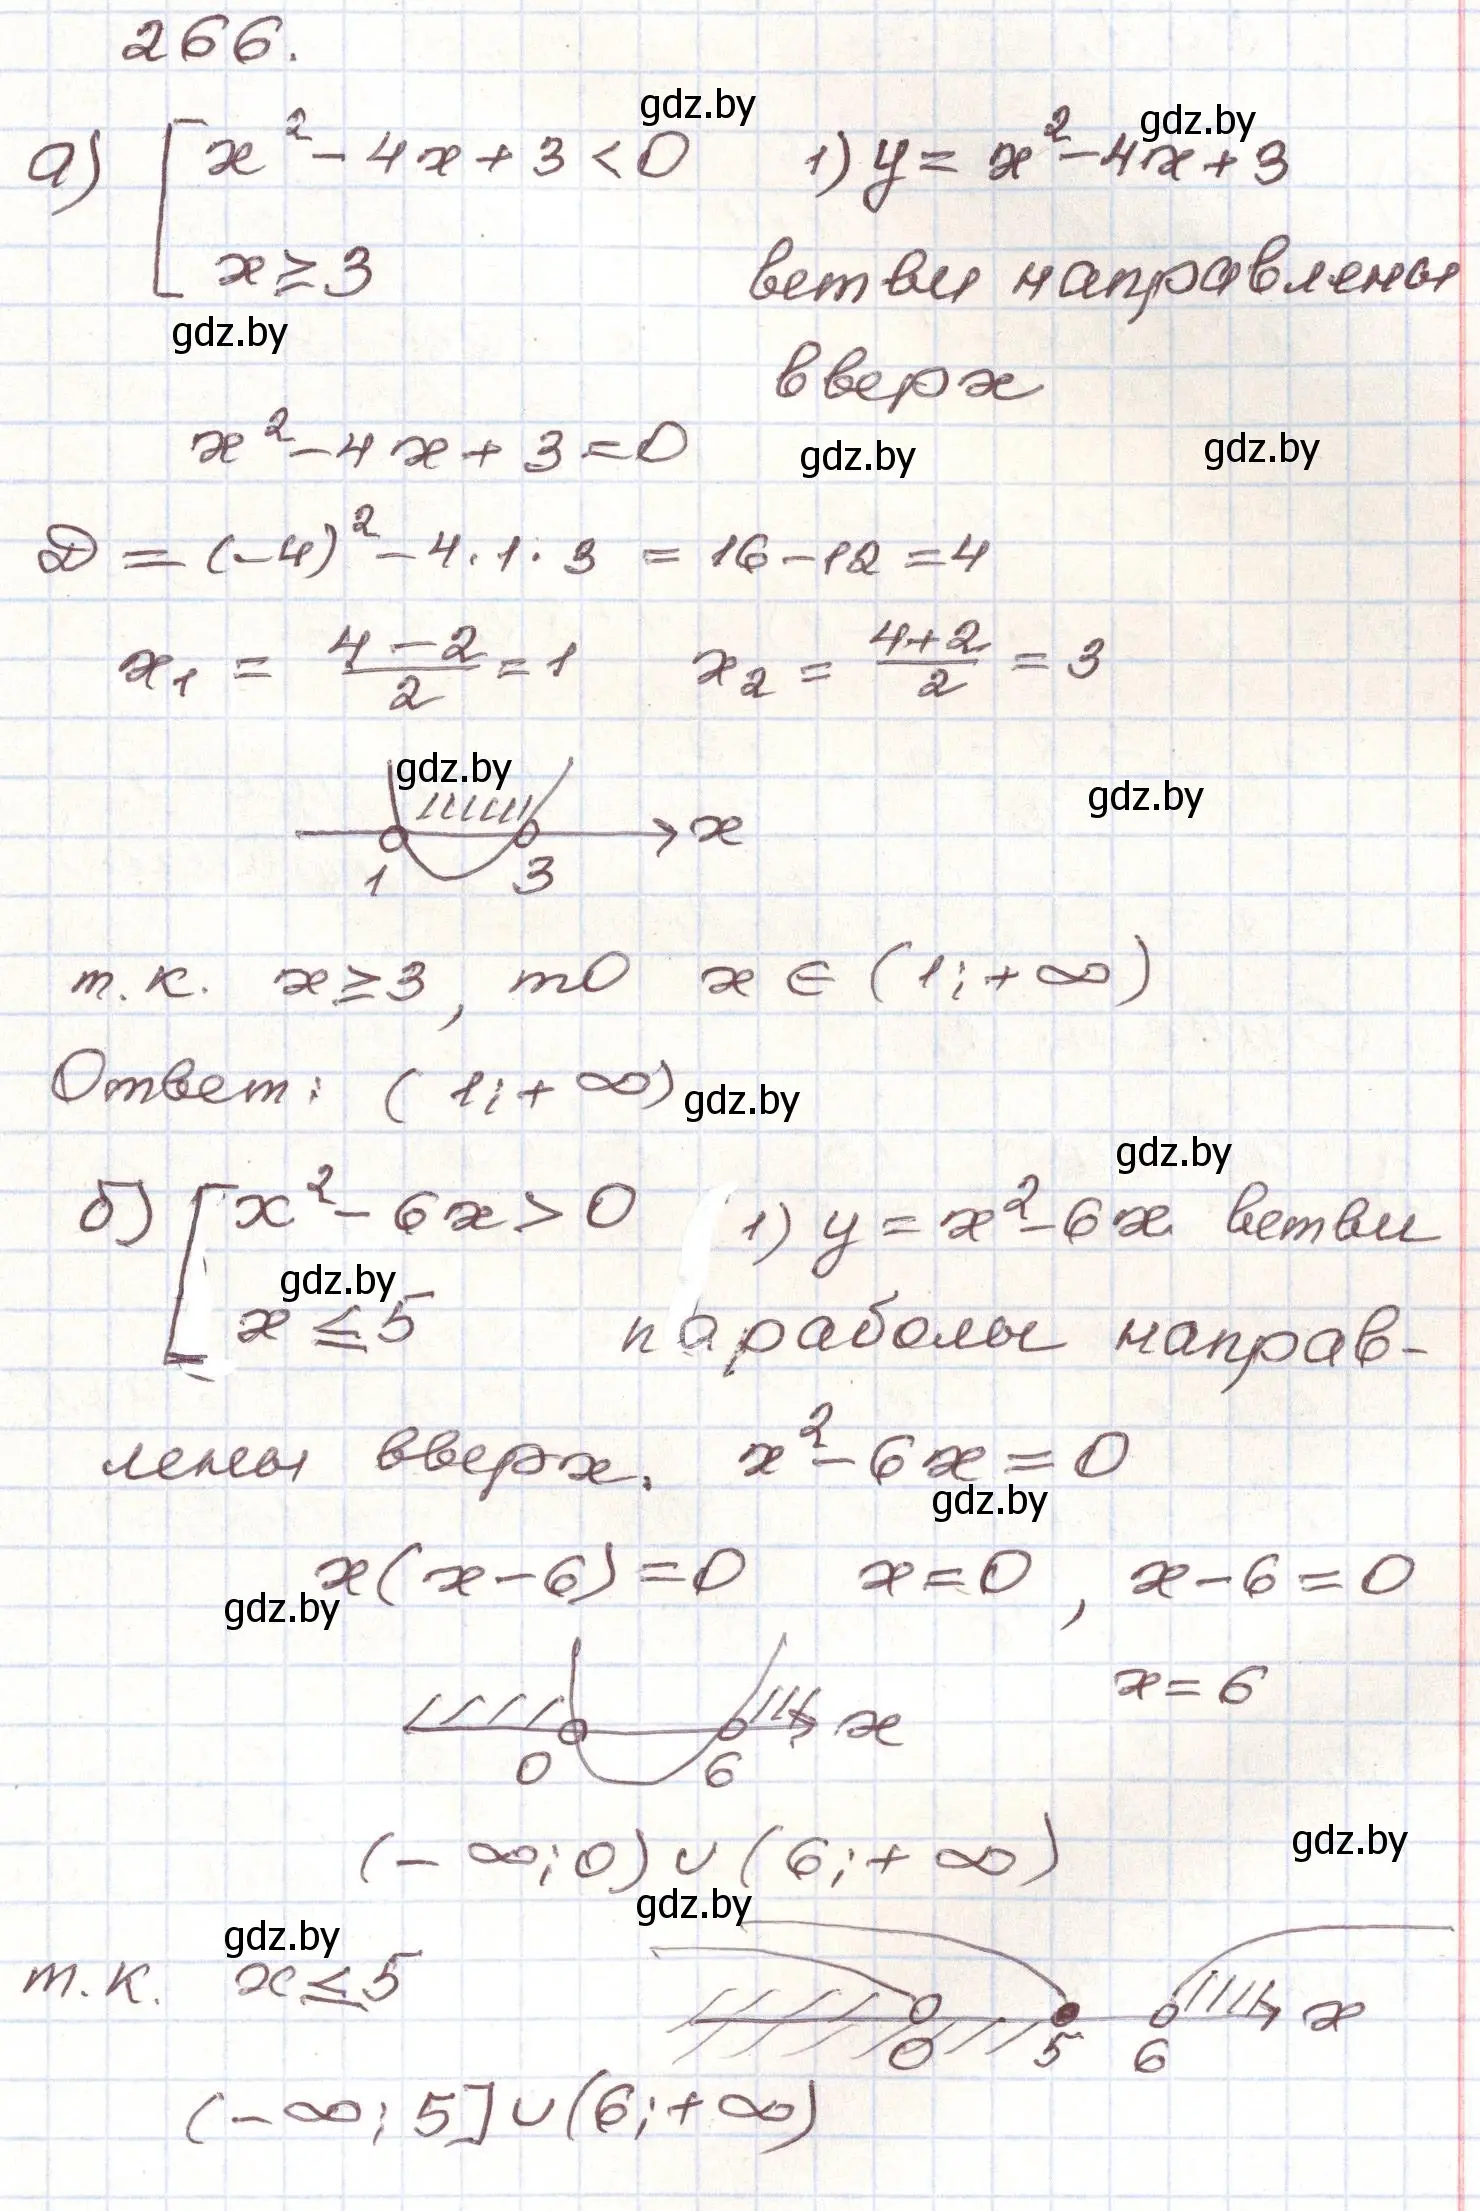 266.
gdz.by
gdz.by
а) [ x² - 4x + 3 < 0    1) y = x² - 4x + 3
x ≥ 3    ветви направлены
gdz.by
вверх
x² - 4x + 3 = 0
gdz.by
gdz.by
D = (-4)² - 4·1·3 = 16 - 12 = 4
x₁ = (4 - 2)/2 = 1    x₂ = (4+2)/2 = 3
gdz.by
gdz.by
1    3    x
т.к. x ≥ 3, то x ∈ (1; +∞)
Ответ: (1; +∞)
gdz.by
gdz.by
б) [ x² - 6x > 0    1) y = x² - 6x ветви
gdz.by
x ≤ 5    параболы направ-
лены вверх. x² - 6x = 0
gdz.by
x(x - 6) = 0    x = 0, x - 6 = 0
gdz.by
x = 6
0    6    x
(-∞; 0) ∪ (6; +∞)
gdz.by
gdz.by
gdz.by
т.к. x ≤ 5
0    5    6    x
(-∞; 5] ∪ (6; +∞)